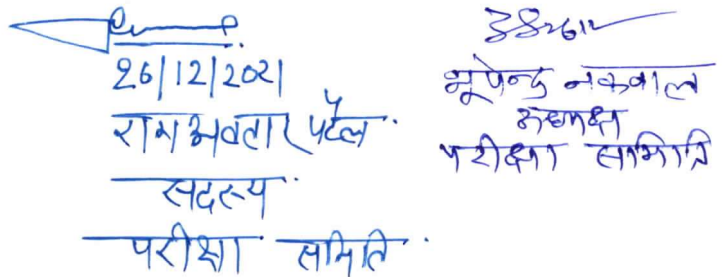 26/12/2021
राम अवतार पटेल
सदस्य
परीक्षा समिति
भूपेन्द्र नकवाल
अध्यक्ष
परीक्षा समिति